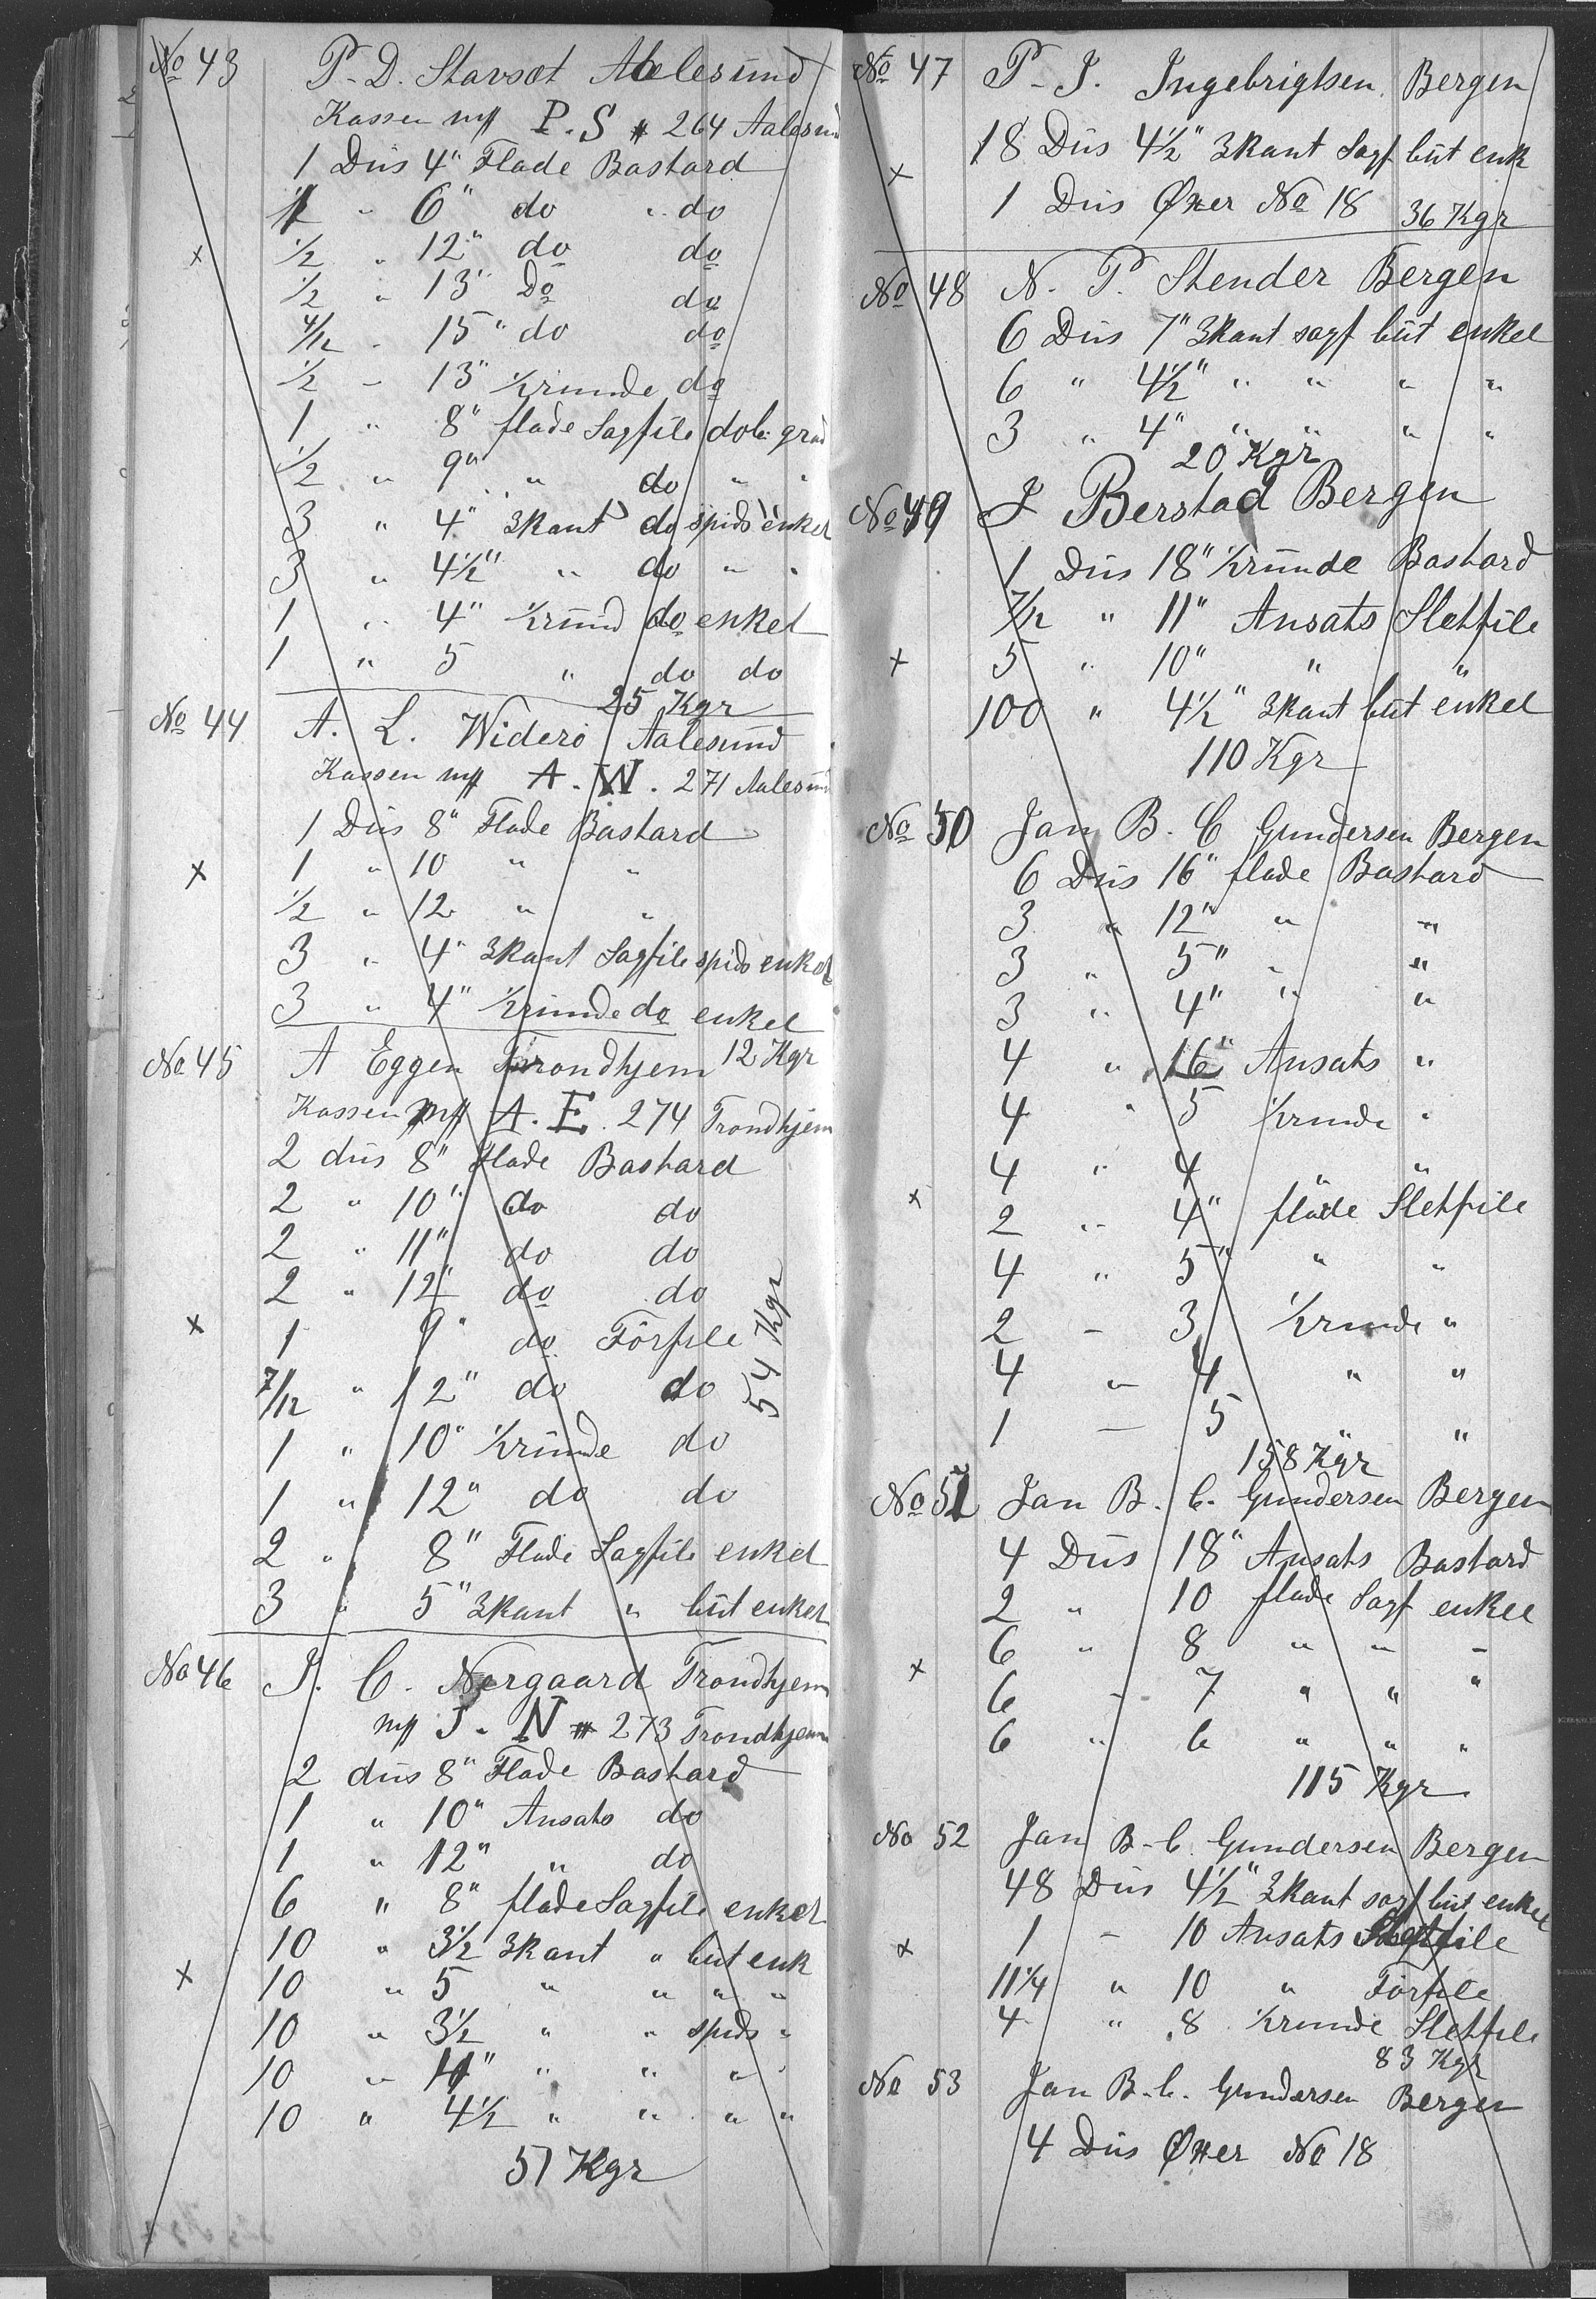 No 43 P. D. Stavset Aalesund
Kassen mrk P. S # 264 Aalesund
1 Düs 4" Flade Bastard
1 " 6" do " do
1/2 " 12" do do
1/2 " 13" Do do
4/12 " 15" do do
1/2 - 13" 1/2runde do
1 " 8" flade Sagfile dob. grad
1/2 " 9" " do " "
3 " 4" 3kant do spids enkel
3 " 4 1/2" " do " "
1 " 4" 1/2rund do enkel
1 " 5 " do do
25 Kgr
No 44 A. L. Widerö Aalesund
Kassen mrk A. W. 271 Aalesund
1 Düs 8" Flade Bastard
x 1 " 10 " "
1/2 " 12 " "
3 " 4" 3kant Sagfile spids enkel
3 " 4" 1/2runde do enkel
No 45 A Eggen Trondhjem 12 Kgr
Kassen mrk A. E. 274 Trondhjem
2 düs 8" Flade Bastard
2 " 10" do do
2 " 11" do do
2 " 12" do do
x 1 9" do Förfile
7/12 " 12" do do
54 Kgr
1 " 10" 1/2runde do
1 " 12" do do
2 " 8" Flade Sagfile enkel
3 " 5" 3kant " büt enkel
No 46 J. C. Nergaard Trondhjem
mrk J. N # 273 Trondhjem
2 düs 8" Flade Bastard
1 " 10" Ansats do
1 " 12" " do
6 " 8" flade Sagfile enkel
10 " 3 1/2 3kant " but enk
x 10 " 5 " " " "
10 " 3 1/2 " " spids "
10 " 4" " " " "
10 " 4 1/2 " " " "
51 Kgr
No 47 P. J. Ingebrigtsen Bergen
18 Düs 4 1/2" 3kant Sagf büt enk
x
1 Düs Øxer No 18 36 Kgr
No 48 N. P. Stender Bergen
6 Düs 7" 3kant sagf büt enkel
6 " 4 1/2" " " " "
3 " 4" " " " "
20 Kgr
No 49 J Berstad Bergen
1 Düs 18" 1/2runde Bastard
7/12 " 11" Ansats Sletfile
x 5 " 10" " "
100 " 4 1/2" 3kant büt enkel
110 Kgr
No 50 Jan B. C Gundersen Bergen
6 Düs 16" flade Bastard
3 " 12" " "
3 " 5" " "
3 " 4" " "
4 " 16" Ansats "
4 " 5 1/2runde "
4 " 4 " "
x 2 " 4" flade Sletfile
4 " 5" " "
2 - 3 1/2runde "
4 " 4 " "
1 - 5 " "
158 Kgr
No 51 Jan B. C. Gundersen Bergen
4 Düs 18" Ansats Bastard
2 " 10 flade Sagf enkel
6 " 8 " " "
x 6 - 7 " " "
6 " 6 " " "
115 Kgr
No 52 Jan B. C. Gundersen Bergen
48 Düs 4 1/2" 3kant sagf but enkel
x 1 - 10 Ansats Sletfile
11 1/4 " 10 " Förfile
4 " 8 1/2runde Sletfile
83 Kgr
No 53 Jan B. C. Gundersen Bergen
4 Düs Øxer No 18